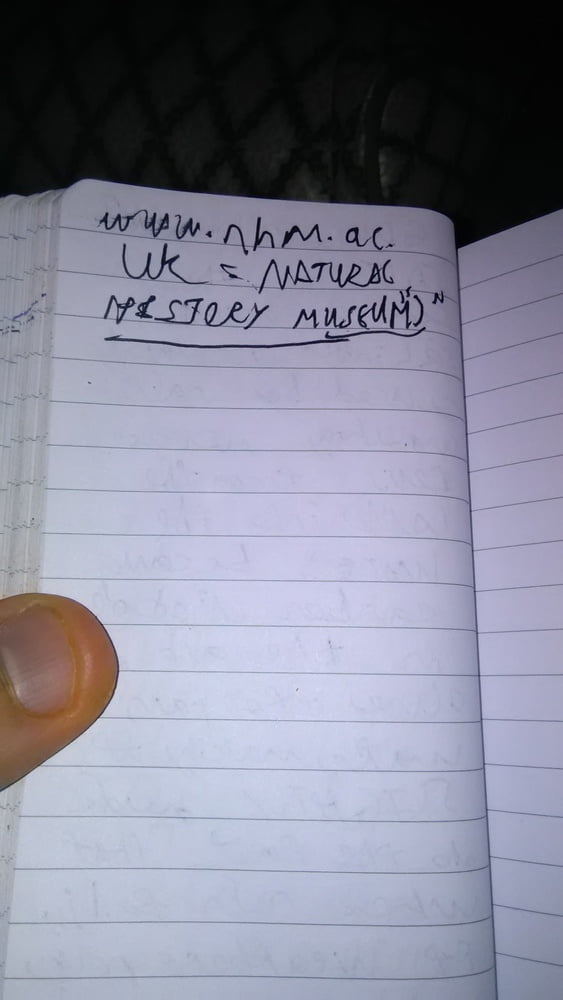 www.nhm.ac.
UK = NATURAL
HISTORY MUSEUM)"